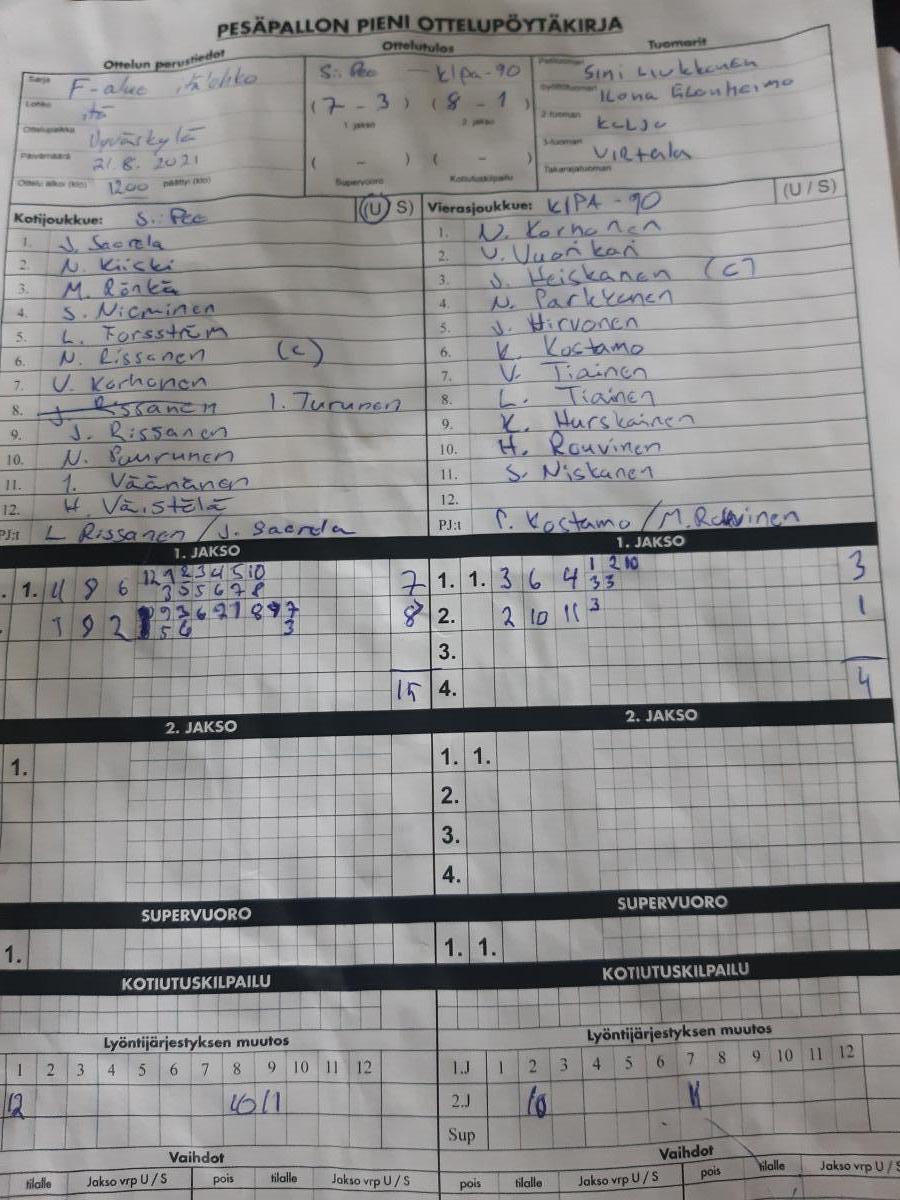 PESÄPALLON PIENI OTTELUPÖYTÄKIRJA
Ottelun perustiedot
Ottelutulos
Tuomarit
Sarja F-alue itälohko
Lohko itä
Ottelupaikka Jyväskylä
Päivämäärä 21.8.2021
Ottelu alkoi (klo) 1200 päättyi (klo)
S:Pee - KIPa-90
(7 - 3) (8 - 1)
1. jakso 2. jakso
( - ) ( - )
Supervuoro Kotiutuskilpailu
Sini Liukkonen
Ilona
2-tuomari
3-tuomari Virtala
Takarajatuomari
Kotijoukkue: S:Pee (U S)
1. J. Saarela
2. N. Kiiski
3. M. Rönkä
4. S. Nieminen
5. L. Forsström
6. N. Rissanen (c)
7. V. Korhonen
8. J. Rissanen I. Turunen
9. J. Rissanen
10. N. Puurunen
11. I. Väänänen
12. H. Väistelä
PJ:t L Rissanen / J. Saarela
Vierasjoukkue: KIPA-90 (U / S)
1. N. Korhonen
2. V. Vuorikari
3. J. Heiskanen (c)
4. N. Parkkonen
5. J. Hirvonen
6. K. Kostamo
7. V. Tiainen
8. L. Tiainen
9. K. Hurskainen
10. H. Rouvinen
11. S. Niskanen
12.
PJ:t P. Kostamo / M. Rouvinen
1. JAKSO
1. 4 8 6 12 9 2 3 4 5 10 7
3 5 5 6 7 8
1 9 2 8
5 6 3
15
1. JAKSO
1. 1. 3 6 4 1 2 10 3
3 3
2. 2 10 11 3 1
3.
4. 4
2. JAKSO
1.
2. JAKSO
1. 1.
2.
3.
4.
SUPERVUORO
1.
SUPERVUORO
1. 1.
KOTIUTUSKILPAILU
KOTIUTUSKILPAILU
Lyöntijärjestyksen muutos
1 2 3 4 5 6 7 8 9 10 11 12
12 10 11
Lyöntijärjestyksen muutos
1.J 1 2 3 4 5 6 7 8 9 10 11 12
2.J 10 11
Sup
Vaihdot
tilalle Jakso vrp U / S pois tilalle Jakso vrp U / S
Vaihdot
pois tilalle Jakso vrp U / S pois tilalle Jakso vrp U / S